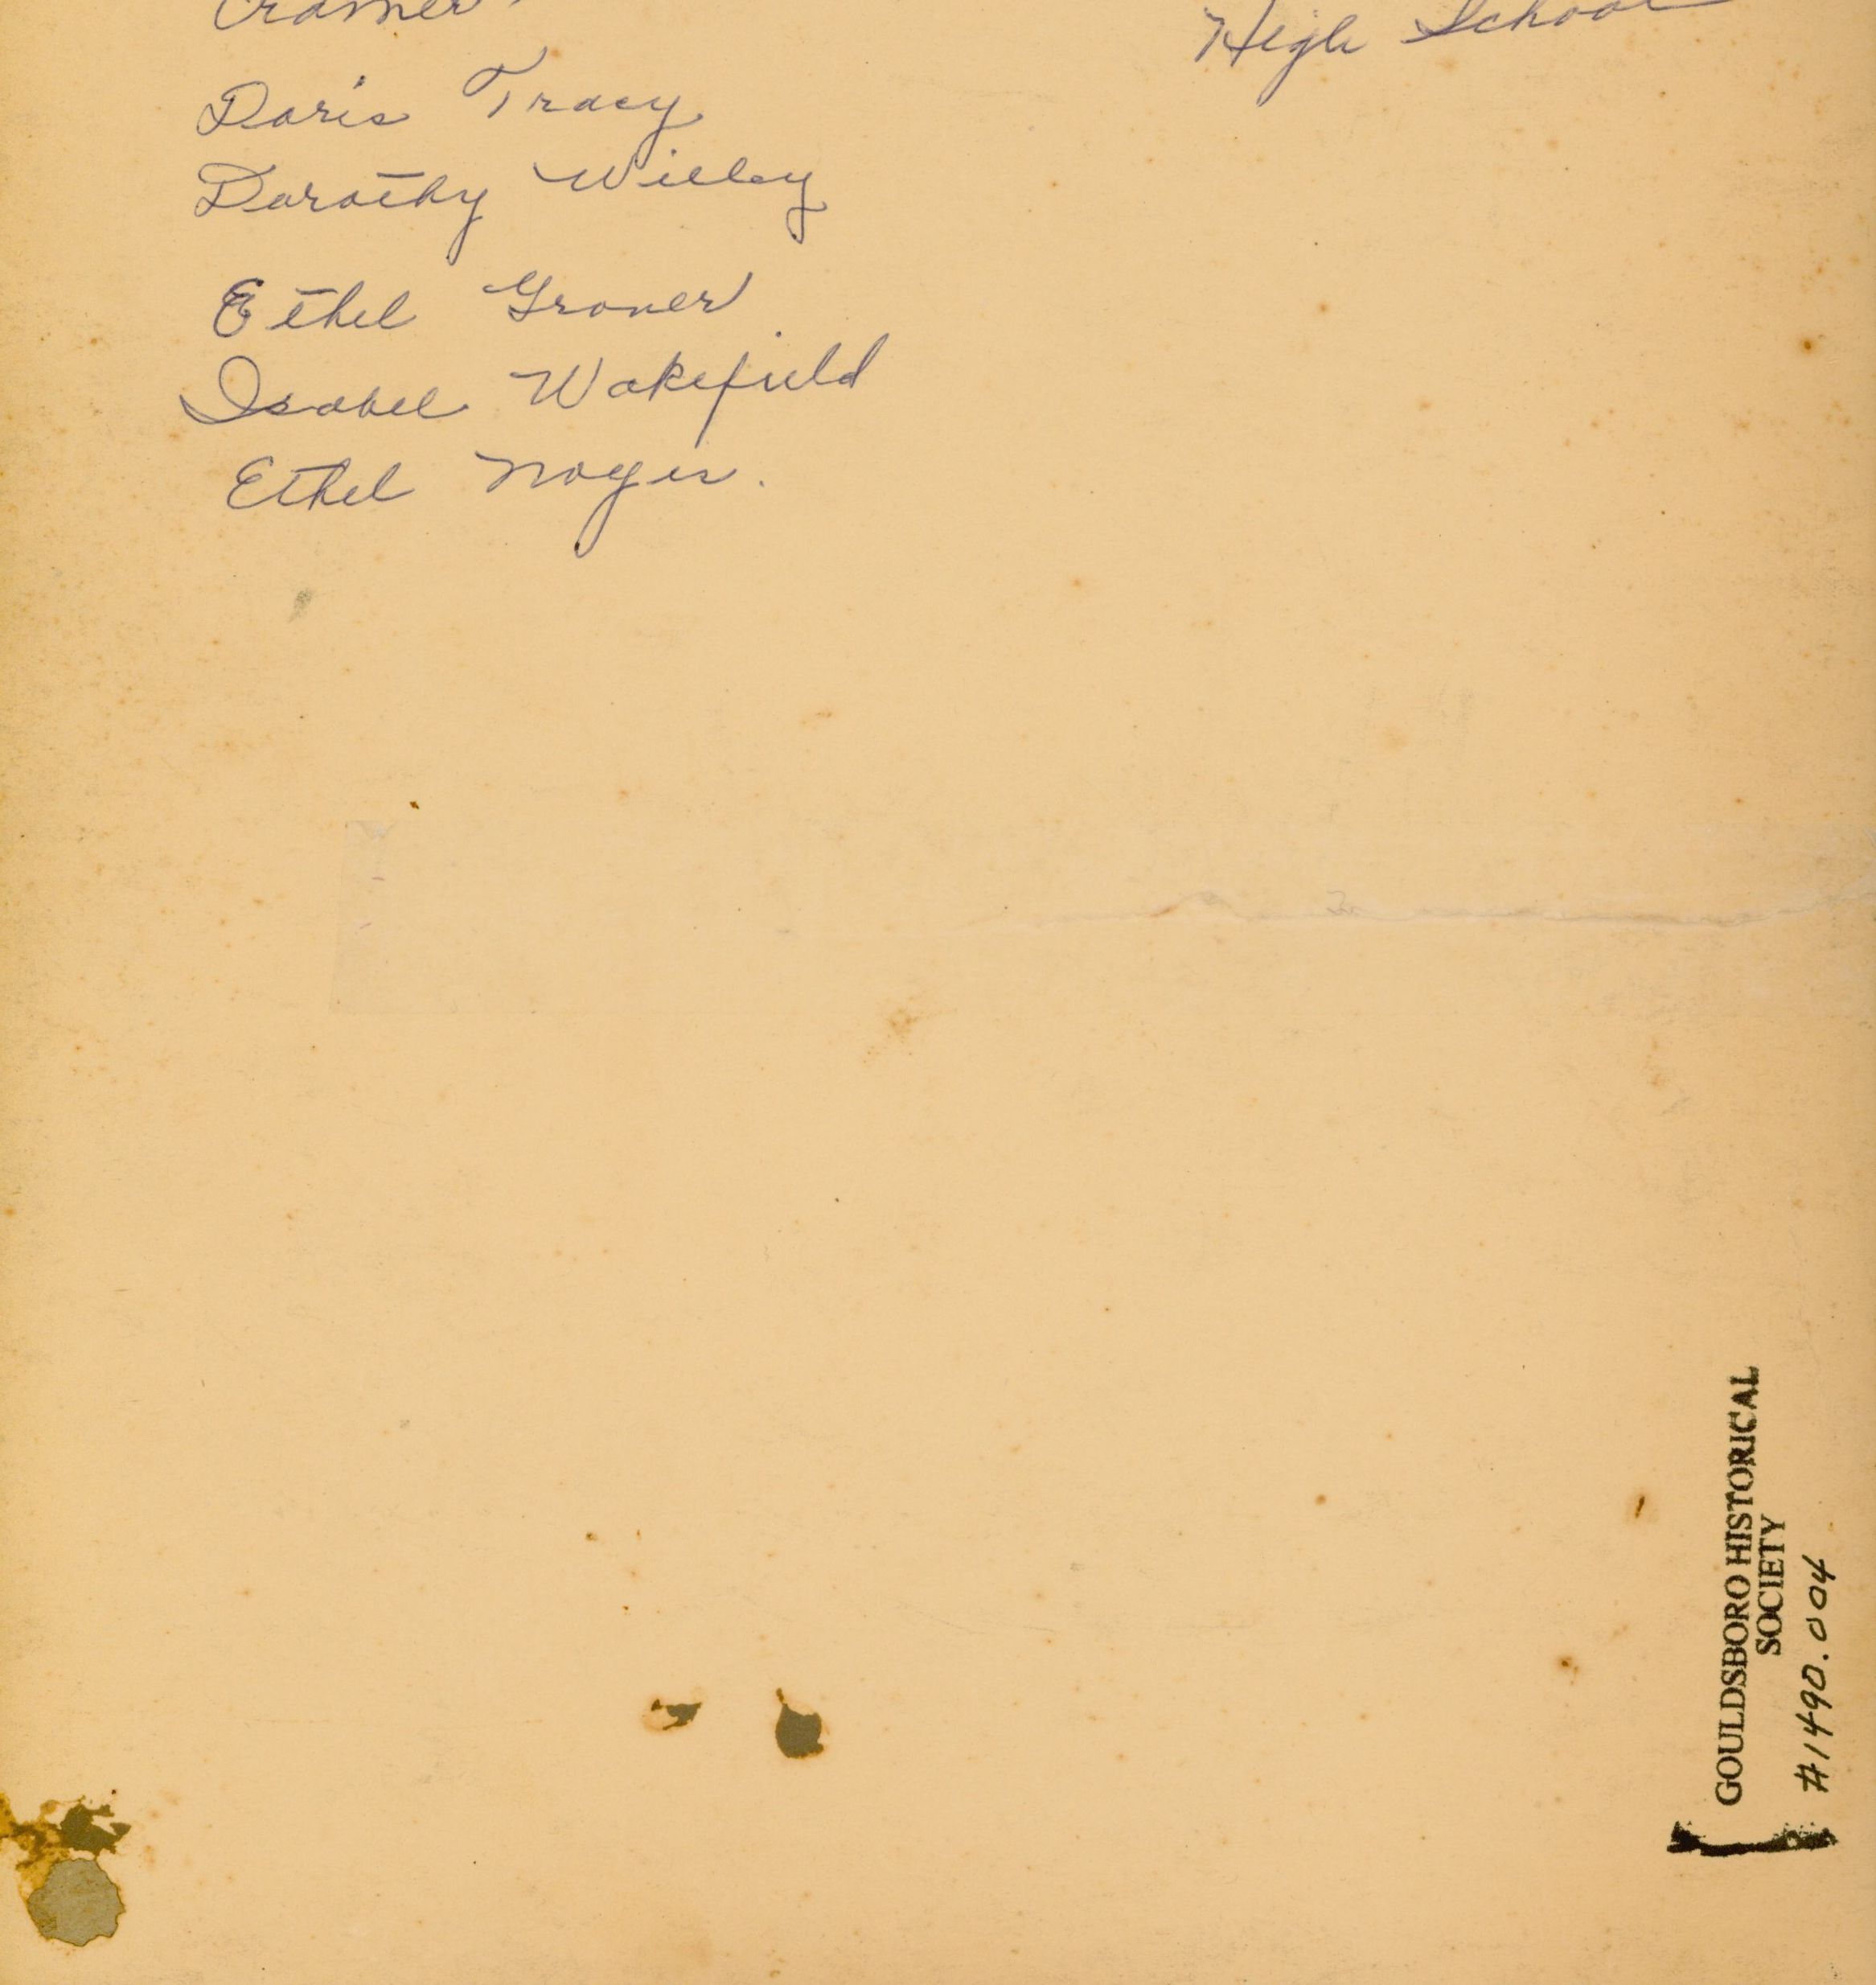 Cramer.
High School
Doris Tracy
Dorothy Willey
Ethel Grover
Isabel Wakefield
Ethel Noyes.
GOULDSBORO HISTORICAL
SOCIETY
#1490.004